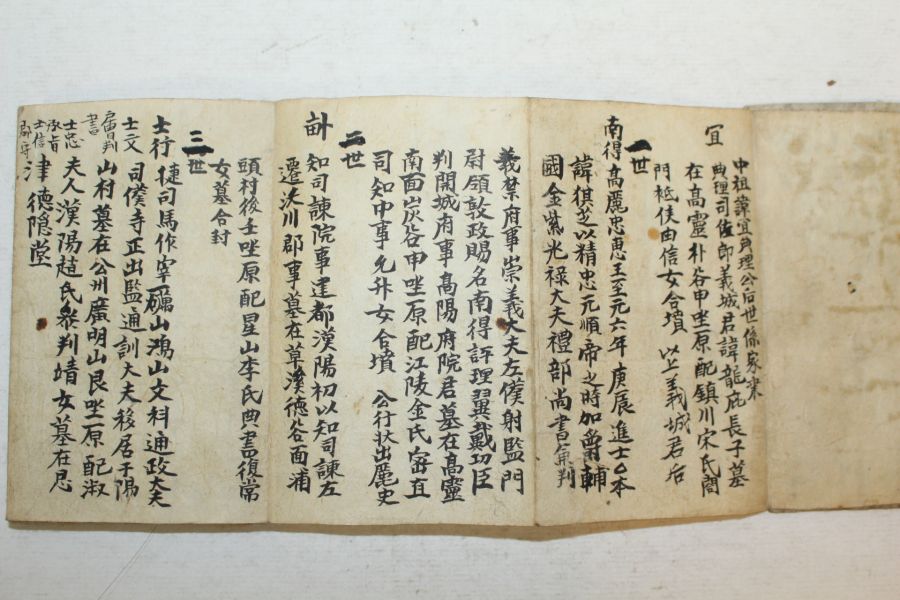 中祖諱宜典理公后世係家乘
宜
典理司佐郎義城君諱龍庇長子墓
在高靈朴谷申坐原配鎮川宋氏閤
門祗侯由信女合墳 以上義城君后
一世
南得高麗忠惠王至元六年庚辰進士乙本
諱祺以精忠元順帝之時加爵輔
國金紫光祿大夫禮部尚書兼判
義禁府事崇義大夫左僕射監門
尉領敦政賜名南得評理翼戴功臣
判開城府事高陽府院君墓在高靈
南面炭谷申坐原配江陵金氏密直
司知申事允升女合墳 公行狀出麗史
二世
訃
知司諫院事達都漢陽初以知司諫左
遷沃川郡事墓在草溪德谷面浦
頭村後壬坐原配星山李氏典書復常
女墓合封
三世
士行
捷司馬作宰礪山鴻山文科通政大夫
士文
司僕寺正出監通訓大夫移居于陽
山村墓在公州廣明山艮坐原配淑
士忠
夫人漢陽趙氏參判靖女墓在忍
士信
津德隐堂
郡守